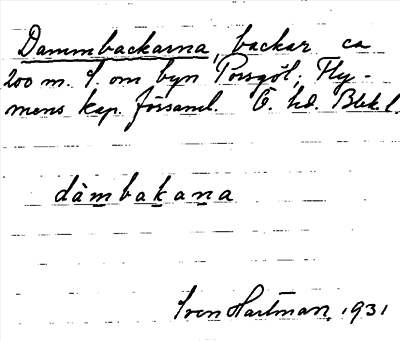 Dammbackarna, backar ca
200 m. S. om byn Porsgöl, Fly-
mens kap. församl. Ö. hd. Blek. l.
dàmbakana
Sven Hartman, 1931